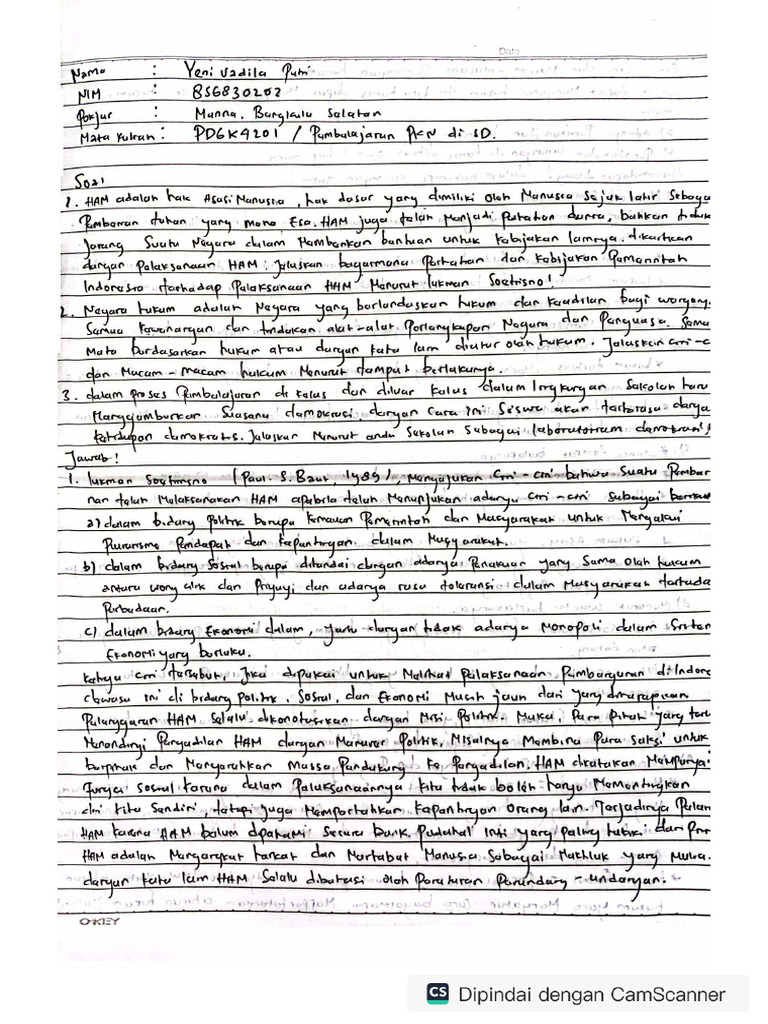 Date
Nama : Yeni Vadila Putri
NIM : 856830202
Pokjar : Manna. Bengkulu Selatan
Mata Kuliah : PDGK4201 / Pembelajaran PKN di SD.
Soal
1. HAM adalah hak Asasi Manusia, hak dasar yang dimiliki oleh Manusia Sejak lahir Sebaga
Pemberian tuhan yang maha Esa. HAM juga telah Menjadi Perhatian dunia, bahkan tidak
Jarang Suatu Negara dalam Memberikan bantuan untuk Kebijakan lainnya. dikaitkan
dengan Pelaksanaan HAM. Jelaskan bagaimana Perhatian dan Kebijakan Pemerintah
Indonesia terhadap Pelaksanaan HAM Menurut lukman Soetrisno!
2. Negara hukum adalah Negara yang berlandaskan hukum dan Keadilan bagi warganya.
Semua Kewenangan dan tindakan alat-alat Perlengkapan Negara dan Penguasa. Sema
Mata berdasarkan hukum atau dengan kata lain diatur oleh hukum. Jelaskan ciri-c
dan Macam-macam hukum Menurut tempat berlakunya.
3. dalam proses Pembelajaran di kelas dan diluar kelas dalam lingkungan Sekolah haru
Menggambarkan Suasana demokrasi. dengan Cara ini Siswa akan terbiasa denga
kehidupan demokratis. Jelaskan Menurut anda Sekolah Sebagai laboratorium demokrasi!
Jawab!
1. lukman Soetrisno (Paul. S. Baut, 1989), Mengajukan Ciri-ciri bahwa Suatu Pemban
nan telah Melaksanakan HAM apabila telah Menunjukan adanya Ciri-ciri Sebagai berikut
a) dalam bidang Politik berupa kemauan Pemerintah dan Masyarakat untuk Mengakui
Pluralisme Pendapat dan Kepentingan dalam Masyarakat.
b) dalam bidang Sosial berupa ditandai dengan adanya Perlakuan yang Sama oleh hukum
antara wong cilik dan Priyayi dan adanya rasa toleransi dalam Masyarakat terhada
Perbedaan.
c) dalam bidang Ekonomi dalam, yaitu dengan tidak adanya Monopoli dalam Sistem
Ekonomi yang berlaku.
ketiga ciri tersebut, Jika dipakai untuk Melihat Pelaksanaan Pembangunan di Indone
dewasa ini di bidang politik, Sosial, dan Ekonomi Masih jauh dari yang diharapkan
Pelanggaran HAM Selalu dikonotasikan dengan Misi Politik. Maka, Para Pihak yang terli
Menandingi Pengadilan HAM dengan Manuver Politik, Misalnya Membina Para Saksi untuk
berpihak dan Mengarahkan Massa Pendukung ke Pengadilan. HAM dikatakan Mempunyai
Fungsi Sosial Karena dalam Pelaksanaannya kita tidak boleh hanya Mementingkan
diri kita Sendiri, tetapi juga Memperhatikan Kepentingan Orang lain. Terjadinya Pelan
HAM karena HAM belum dipahami Secara baik. Padahal inti yang paling hakiki dari Prin
HAM adalah Mengangkat harkat dan Martabat Manusia Sebagai Makhluk yang Mulia.
dengan kata lain HAM Selalu dibatasi oleh Peraturan Perundang-undangan.
OKEY
CS Dipindai dengan CamScanner